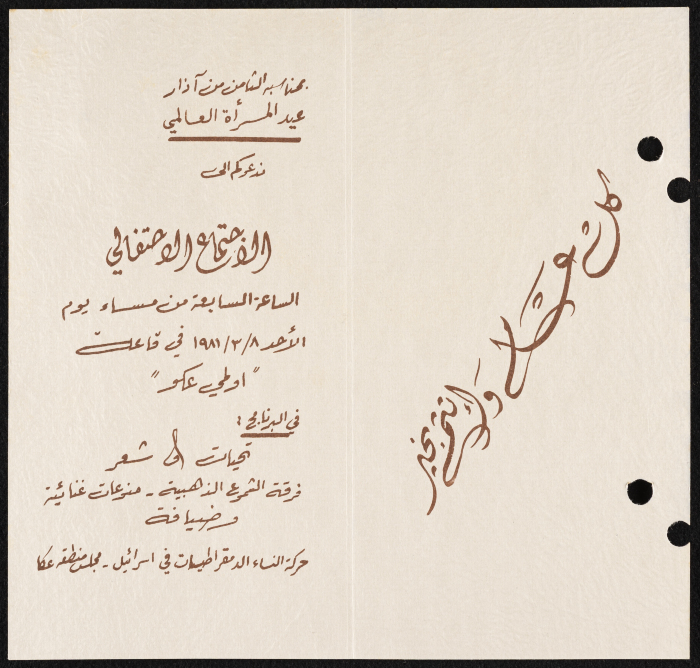 بمناسبة الثامن من آذار
عيد المرأة العالمي
ندعوكم الى
الاجتماع الاحتفالي
الساعة السابعة من مساء يوم
الأحد ١٩٨١/٣/٨ في قاعة
"اولمي عكو"
في البرنامج :
تحيات شعر
فرقة الشموع الذهبية - منوعات غنائية
وضيافة
حركة النساء الدمقراطيات في اسرائيل - مجلس منطقة عكا
كل عام وانتم بخير